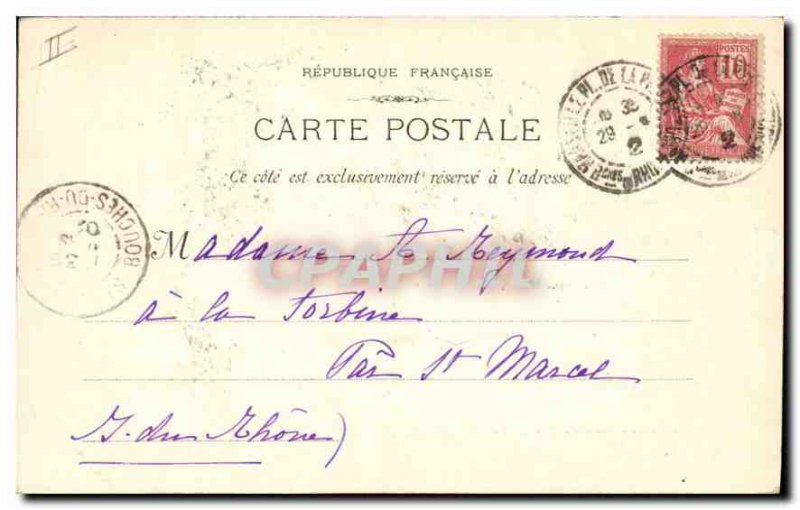 II
POSTES
10
RÉPUBLIQUE FRANÇAISE
CARTE POSTALE
Ce côté est exclusivement réservé à l'adresse
PL. DE LA
29
2
BOUCHES-DU-R
Madame A. Reymond
CPAPHIL
à la Torbine
Par St Marcel
du Rhône)